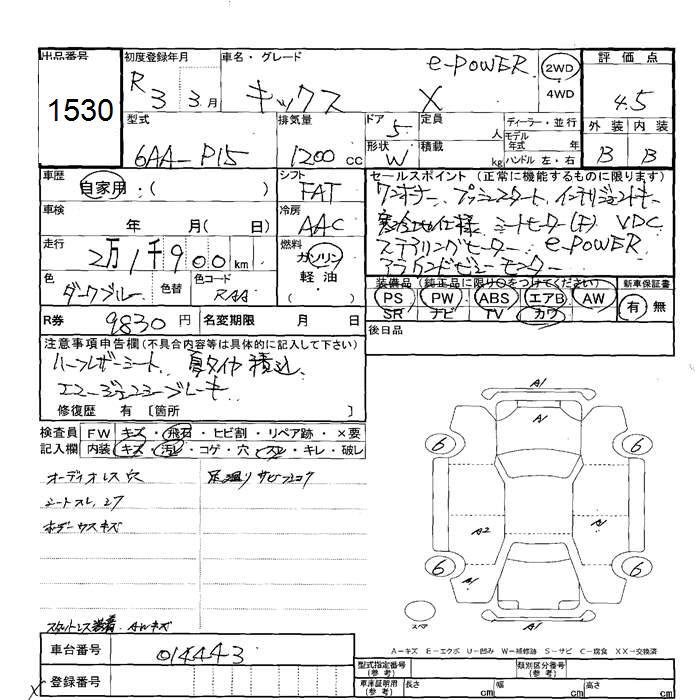 出品番号 初度登録年月 車名・グレード e-POWER 2WD 評価点
1530 R3 3月 キックス X 4WD 4.5
型式 排気量 ドア 5 定員 人 ディーラー・並行 外装 内装
6AA-P15 1200cc 形状 W 積載 kg モデル年式 年 ハンドル 左・右 B B
車歴 シフト セールスポイント (正常に機能するものに限ります)
自家用・( ) FAT ワンオーナー プッシュスタート インテリジェントキー
車検 冷房 寒冷地仕様 シートヒーター(F) VDC
年 月( 日) AAC ステアリングヒーター e-POWER
走行 2万1千900km 燃料 ガソリン アラウンドビューモニター
色 色替 色コード 軽油・ 装備品(純正品に限り○をつけてください) 新車保証書
ダークブルー RAA ( ) PS PW ABS エアB AW 有 無
SR ナビ TV カワ
R券 9830円 名変期限 月 日 後日品
注意事項申告欄(不具合内容等は具体的に記入して下さい)
ハーフレザーシート 夏タイヤ積込
エマージェンシーブレーキ
修復歴 有 〔箇所 〕
検査員 FW キズ・飛石・ヒビ割・リペア跡・×要
記入欄 内装 キズ・汚れ・コゲ・穴・スレ・キレ・破し
オーディオレス 穴 足廻りサビ
シートスレ
ボデーウスキズ
スタットレス装着 AWキズ
A1
A1
6 6
A2 A1
6 6
A1
A1
スペア
A-キズ E-エクボ U-凹み W-補修跡 S-サビ C-腐食 XX-交換済
車台番号 014443
登録番号
型式指定番号(参考) 類別区分番号(参考)
車庫証明用(参考) 長さ cm 幅 cm 高さ cm